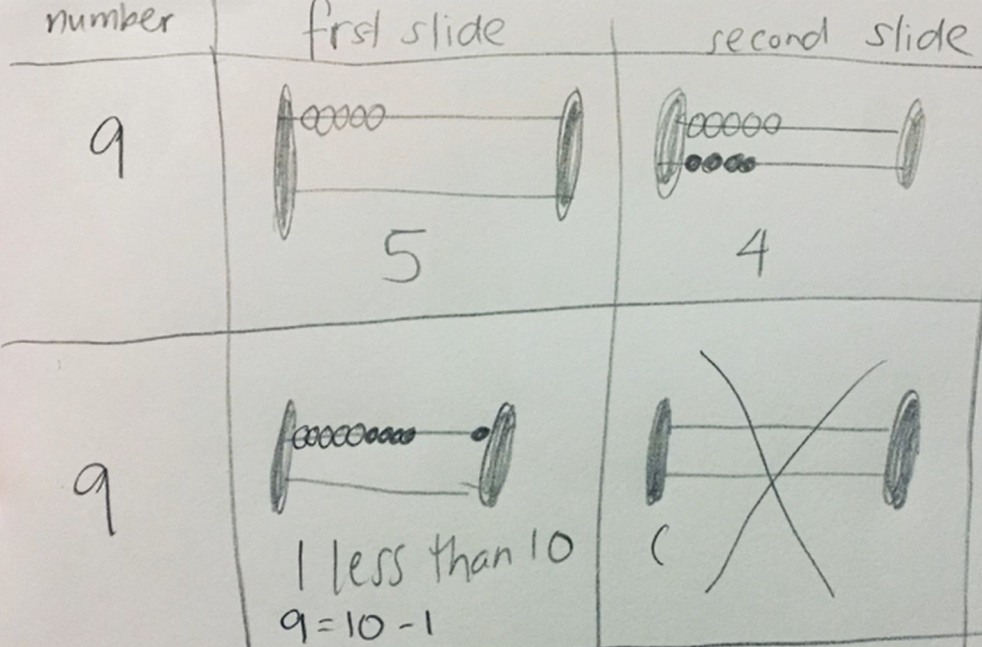 number frst slide second slide
9
5 4
9
1 less than 10 (
9 = 10 - 1